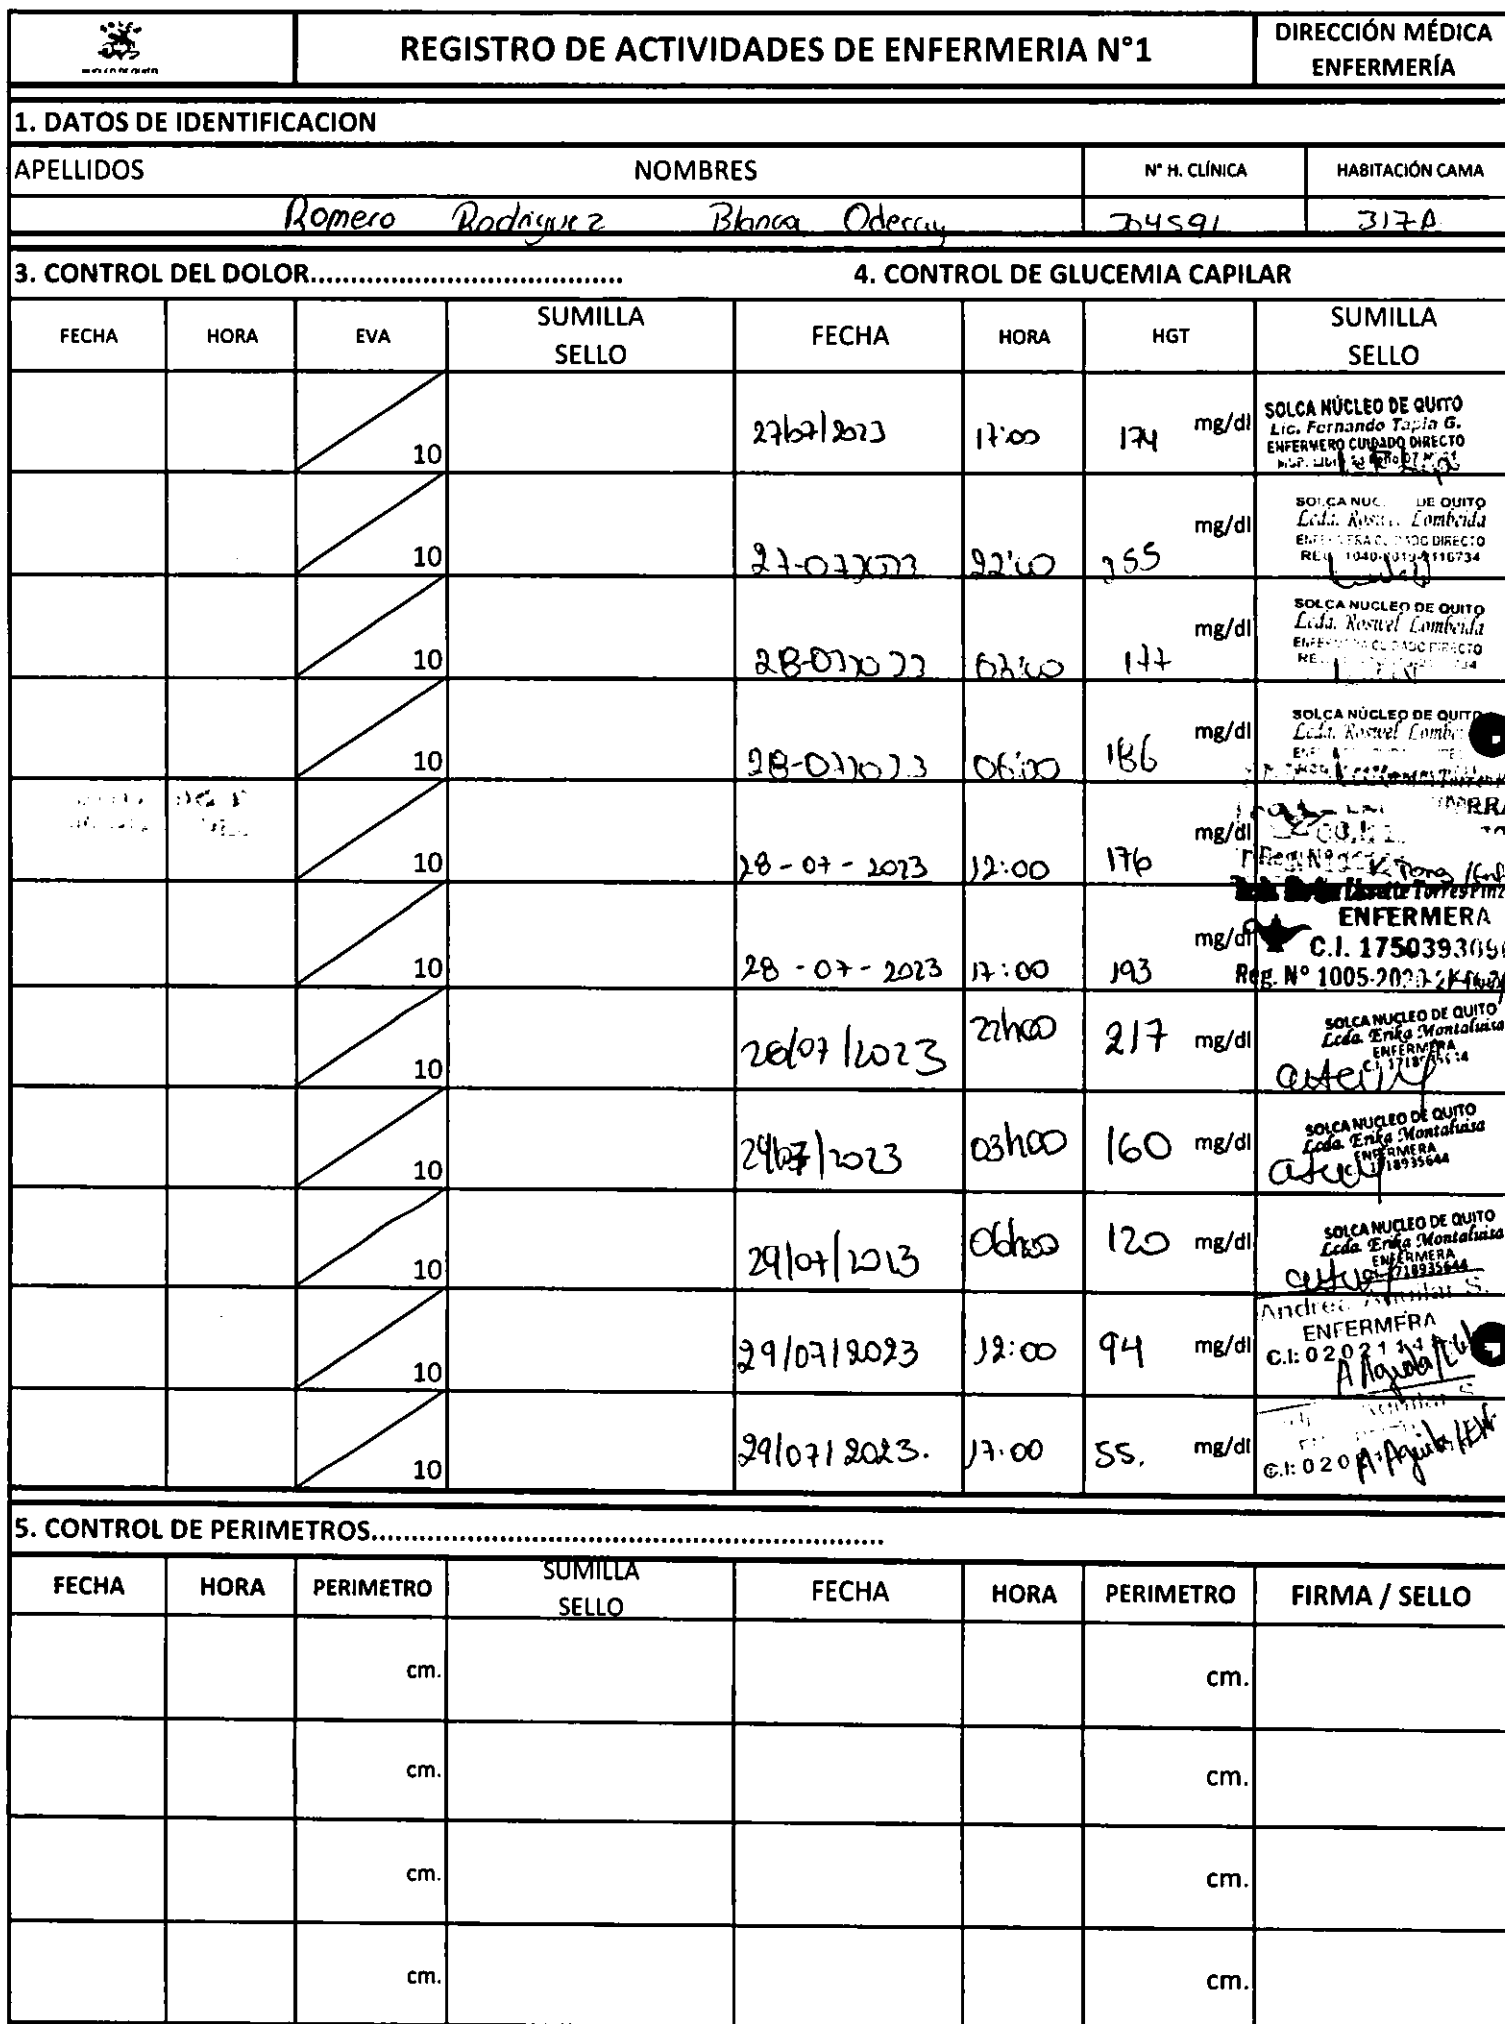 REGISTRO DE ACTIVIDADES DE ENFERMERIA N°1
DIRECCIÓN MÉDICA
ENFERMERÍA
1. DATOS DE IDENTIFICACION
APELLIDOS NOMBRES N° H. CLÍNICA HABITACIÓN CAMA
Romero Rodriguez Blanca Odercuy 704591 317A
3. CONTROL DEL DOLOR...................................... 4. CONTROL DE GLUCEMIA CAPILAR
FECHA HORA EVA SUMILLA SELLO FECHA HORA HGT SUMILLA SELLO
10 27/07/2023 17:00 174 mg/dl SOLCA NÚCLEO DE QUITO
Lic. Fernando Tapia G.
ENFERMERO CUIDADO DIRECTO
10 27-072023 22:00 mg/dl SOLCA NUC DE QUITO
Lcda. Lombeida
DIRECTO
10 28-072023 177 mg/dl SOLCA NUCLEO DE QUITO
Lcda. Roswel Lombeida
10 28-072023 06:00 186 mg/dl SOLCA NÚCLEO DE QUITO
Lcda. Roswel
10 28-07-2023 12:00 176 mg/dl
10 28-07-2023 17:00 193 mg/dl
ENFERMERA
C.I. 175039309
Reg. N° 1005-2020-
10 28/07/2023 22h00 217 mg/dl SOLCA NUCLEO DE QUITO
Lcda. Erika Montaluisa
ENFERMERA
10 29/07/2023 03h00 160 mg/dl SOLCA NUCLEO DE QUITO
Lcda. Erika Montaluisa
ENFERMERA
18935644
10 29/07/2023 06h00 120 mg/dl SOLCA NUCLEO DE QUITO
Lcda. Erika Montaluisa
ENFERMERA
1718935644
10 29/07/2023 12:00 94 mg/dl Andrea S.
ENFERMERA
C.I: 020211
10 29/07/2023. 17:00 55. mg/dl
C.I: 020
5. CONTROL DE PERIMETROS...............................................................
FECHA HORA PERIMETRO SUMILLA SELLO FECHA HORA PERIMETRO FIRMA / SELLO
cm. cm.
cm. cm.
cm. cm.
cm. cm.